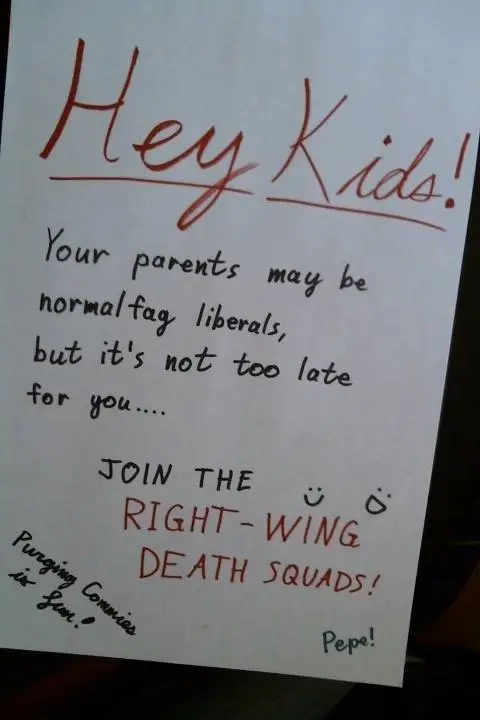 Hey Kids!
Your parents may be
normalfag liberals,
but it's not too late
for you....
JOIN THE
RIGHT-WING
DEATH SQUADS!
Purging Commies
is fun!
Pepe!